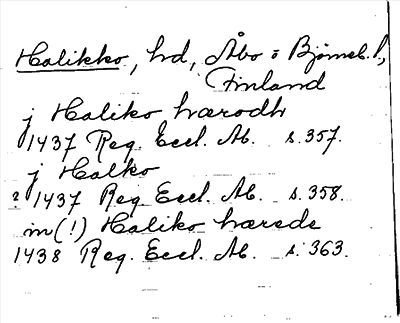 Halikko, hd, Åbo o Björneb. l,
Finland
j Haliko hærodh
1437 Reg. Eccl. Ab. s. 357.
j Halko
? 1437 Reg Eccl. Ab. s. 358.
in (!) Haliko hærede
1438 Reg. Eccl. Ab. s. 363.